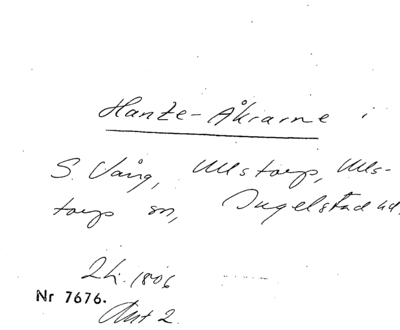 Hante-Åkrarne i
S. Vång, Ullstorp, Ulls-
torp sn, Ingelstad hd.
Lh. 1806
Nr 7676.
Akt 2.